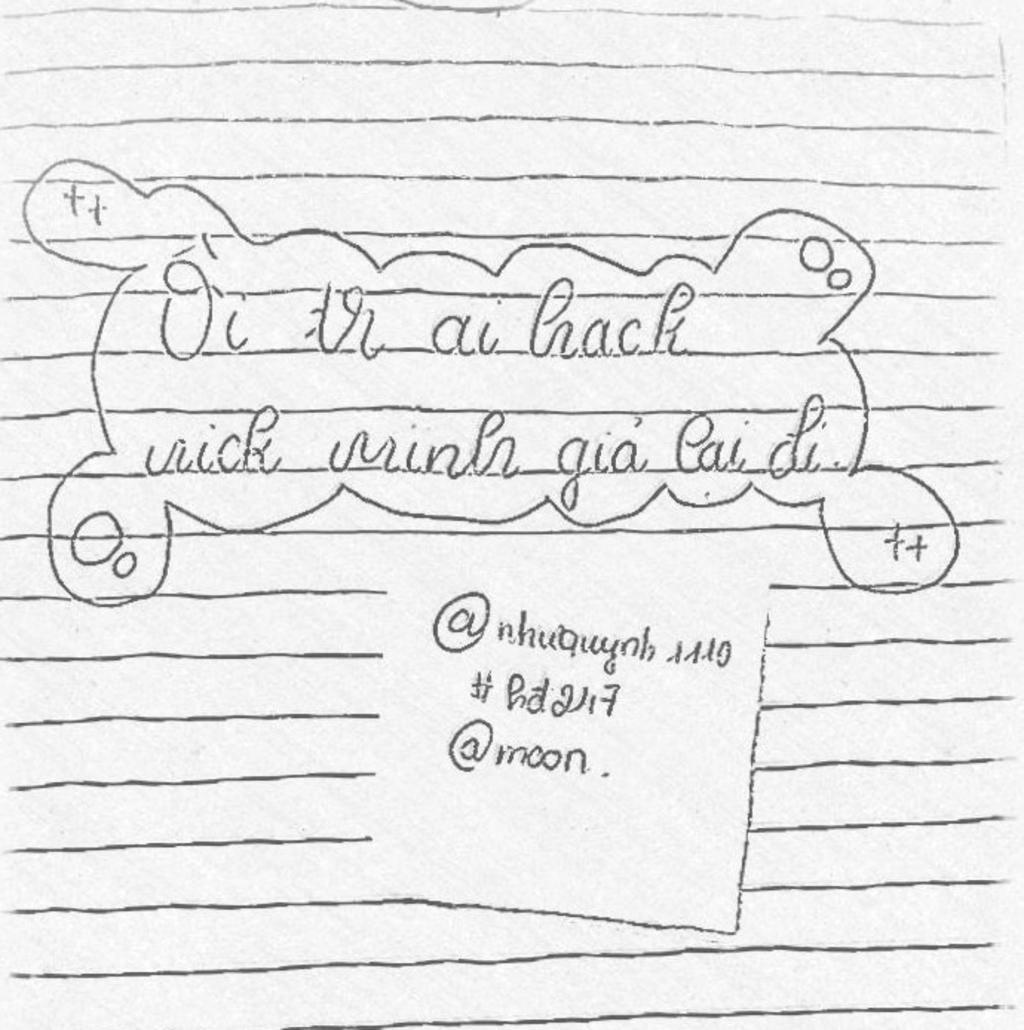 Ời tr ai hack
nick mình giả lại đi.
@nhuquynh1119
#hđ247
@moon.